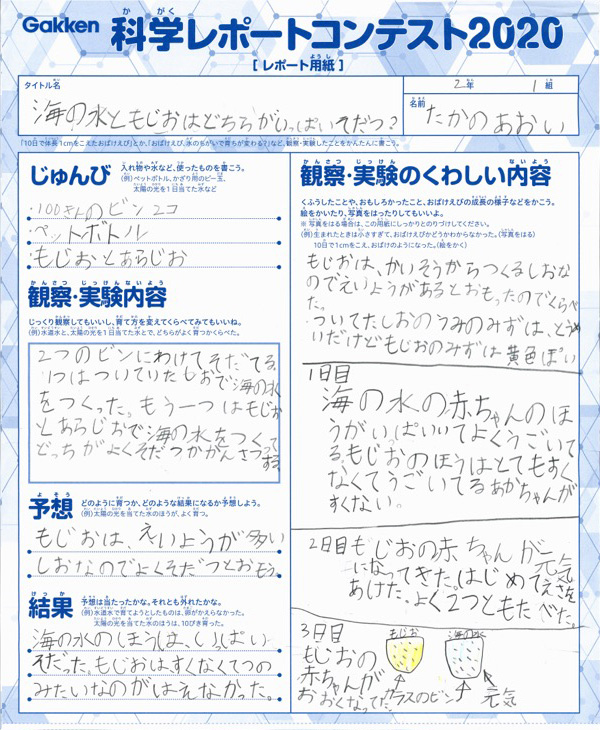 Gakken 科学レポートコンテスト2020
[ レポート用紙 ]
タイトル名
2年 1組
海の水ともじおはどちらがいっぱいそだつ?
名前 たかのあおい
「10日で体長1cmをこえたおばけえび」とか、「おばけえび、水のちがいで育ちが変わる?」など、観察・実験したことをかんたんに書こう。
じゅんび
入れ物や水など、使ったものを書こう。
(例)ペットボトル、かざり用のビー玉、
太陽の光を1日当てた水など
・100きんのビン2コ
ペットボトル
もじおとあらじお
観察・実験内容
じっくり観察してもいいし、育て方を変えてくらべてみてもいいね。
(例)水道水と、太陽の光を1日当てた水とで、どちらがよく育つかくらべた。
2つのビンにわけてそだてる
1つはついていたしおで海の水
をつくった。もう一つはもじお
とあらじおで海の水をつくって
どっちがよくそだつかかんさつする
予想
どのように育つか、どのような結果になるか予想しよう。
(例)太陽の光を当てた水のほうが、よく育つ。
もじおは、えいようが多い
しおなのでよくそだつとおもう。
結果
予想は当たったかな。それとも外れたかな。
(例)水道水で育てようとしたものは、卵がかえらなかった。
太陽の光を当てた水のほうは、10ぴき育った。
海の水のほうは、いっぱい
そだった。もじおはすくなくてつの
みたいなのがはえなかった。
観察・実験のくわしい内容
くふうしたことや、おもしろかったこと、おばけえびの成長の様子などをかこう。
絵をかいたり、写真をはったりしてもいいよ。
※ 写真をはる場合は、この用紙にしっかりとのりづけしてください。
(例)生まれたときは小さすぎて、おばけえびかどうかわからなかった。(写真をはる)
10日で1cmをこえ、おばけのようになった。(絵をかく)
もじおは、かいそうからつくるしおな
のでえいようがあるとおもったのでくらべ
た。
ついてたしおのうみのみずは、とうめ
いだけどもじおのみずは黄色ぽい
1日目
海の水の赤ちゃんのほ
うがいっぱいいてよくうごいて
る。もじおのほうはとてもすく
なくてうごいてるあかちゃんが
すくない。
2日目 もじおの赤ちゃんが元気
になってきた。はじめてえさを
あけた。よく2つともたべた。
3日目
もじおの
赤ちゃんが
おおくなってた
もじお
海の水
ガラスのビン
元気